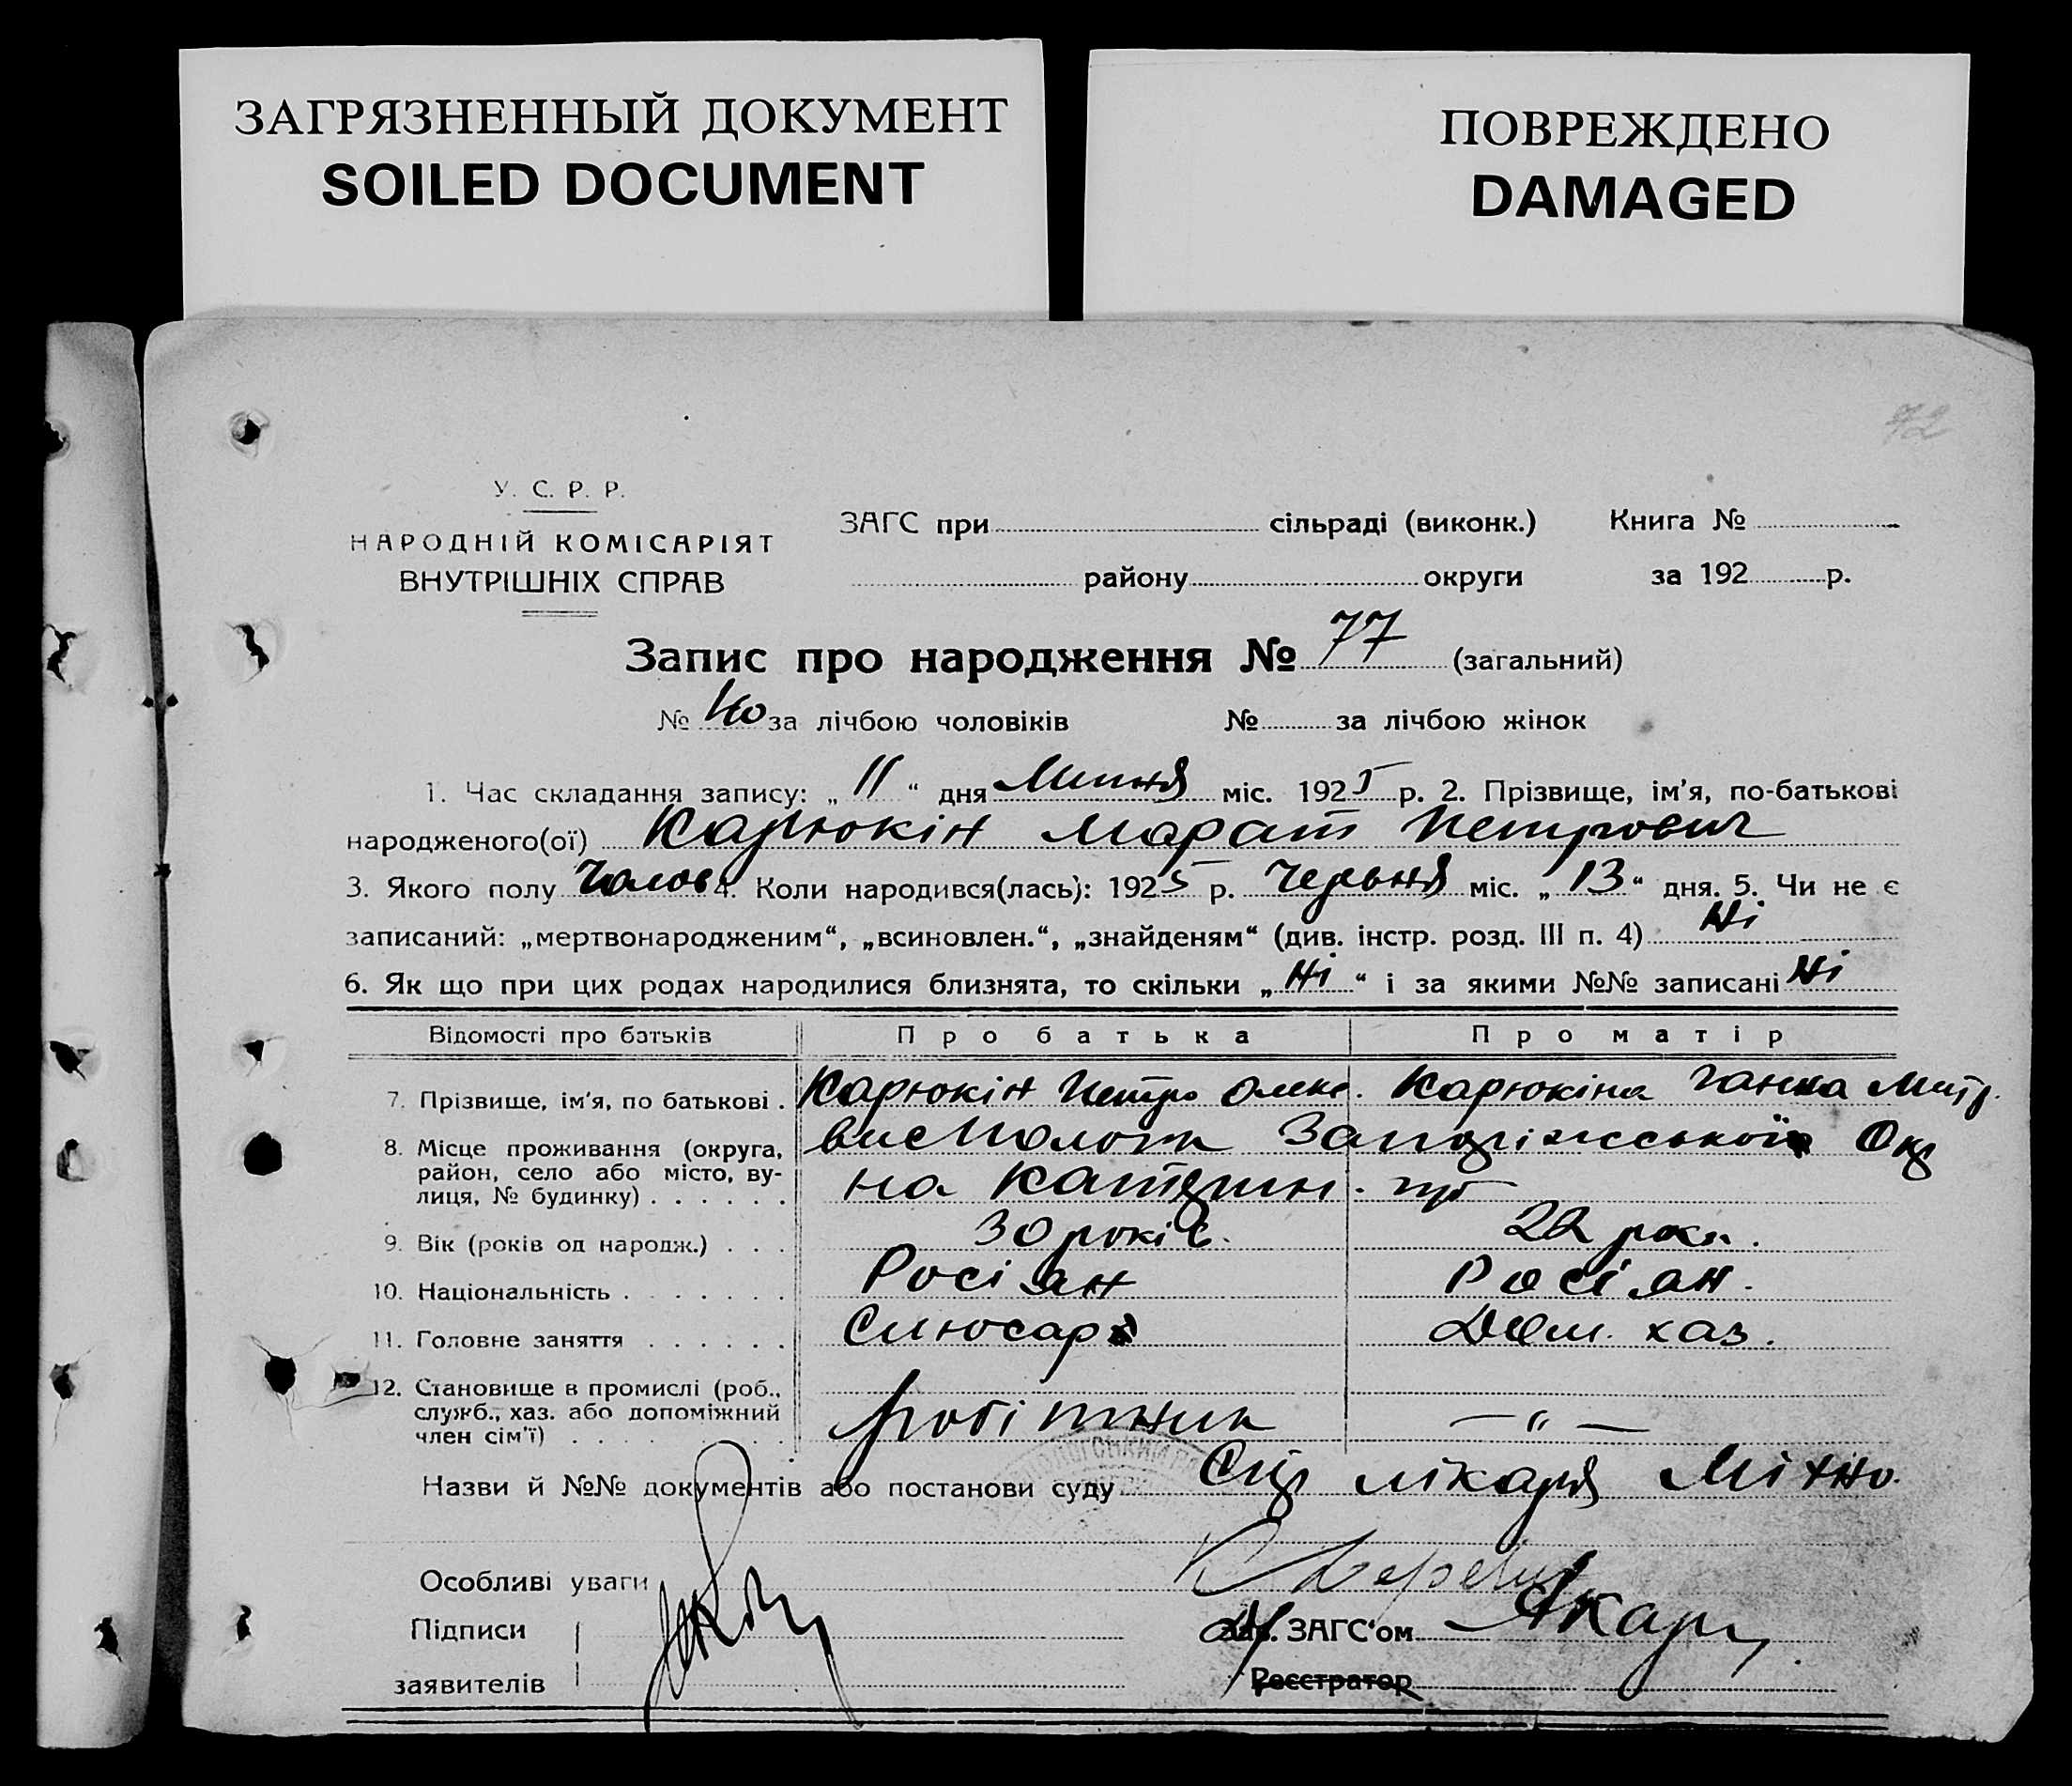 ЗАГРЯЗНЕННЫЙ ДОКУМЕНТ
SOILED DOCUMENT
ПОВРЕЖДЕНО
DAMAGED
72
У. С. Р. Р.
НАРОДНІЙ КОМІСАРІЯТ
ВНУТРІШНІХ СПРАВ
ЗАГС при сільраді (виконк.) Книга №
району округи за 192 р.
Запис про народження № 77 (загальний)
№ 40 за лічбою чоловіків № за лічбою жінок
1. Час складання запису: „11“ дня Липня міс. 1925 р. 2. Прізвище, ім'я, по-батькові
народженого(ої) Карюкін Марат Петрович
3. Якого полу Чолов 4. Коли народився(лась): 1925 р. Червня міс. „13“ дня. 5. Чи не є
записаний: „мертвонародженим“, „всиновлен.“, „знайденям“ (див. інстр. розд. III п. 4) Ні
6. Як що при цих родах народилися близнята, то скільки „Ні“ і за якими №№ записані Ні
Відомості про батьків Про батька Про матір
7. Прізвище, ім'я, по батькові . Карюкін Петро Олекс. Карюкіна Ганна Митр.
8. Місце проживання (округа, Запоріжської Окр
район, село або місто, ву-
лиця, № будинку) . . . . . . на Катерин.
9. Вік (років од народж.) . . . 30 років. 22 рок.
10. Національність . . . . . . . Росіян Росіян.
11. Головне заняття . . . . . . Слюсарь Дом. хаз.
12. Становище в промислі (роб.,
служб., хаз. або допоміжний робітник — „ —
член сім'ї) . . . . . . . . .
Назви й №№ документів або постанови суду лікаря
Особливі уваги
Підписи Зав. ЗАГС'ом
заявителів Реєстратор